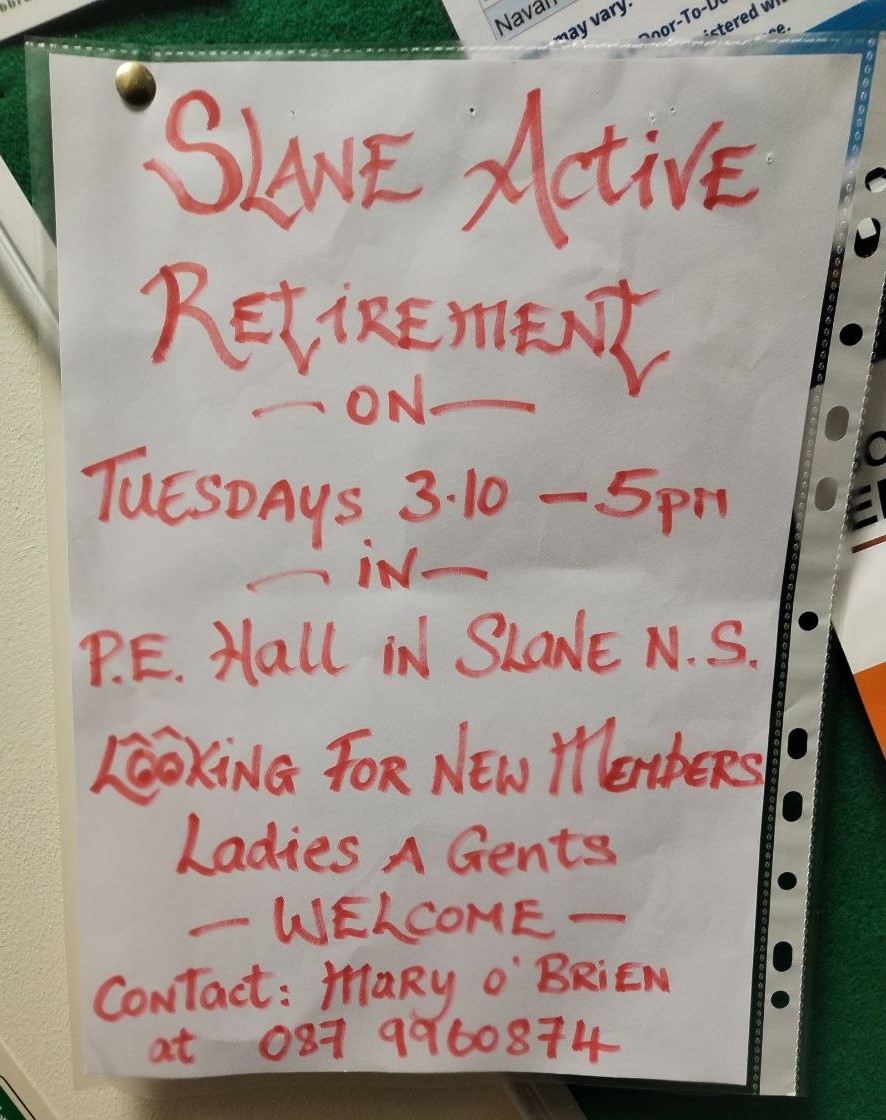 Navan
may vary.
Door-To-Do
istered wi
ce.
SLANE ACtiVE
REtiREMENT
— ON —
TUESDAYS 3.10 — 5pm
— iN —
P.E. Hall iN SLANE N.S.
LOOKiNG FOR NEW MEMBERS
Ladies A Gents
— WELCOME —
CONTact: MARy O'BRiEN
at 087 9960874